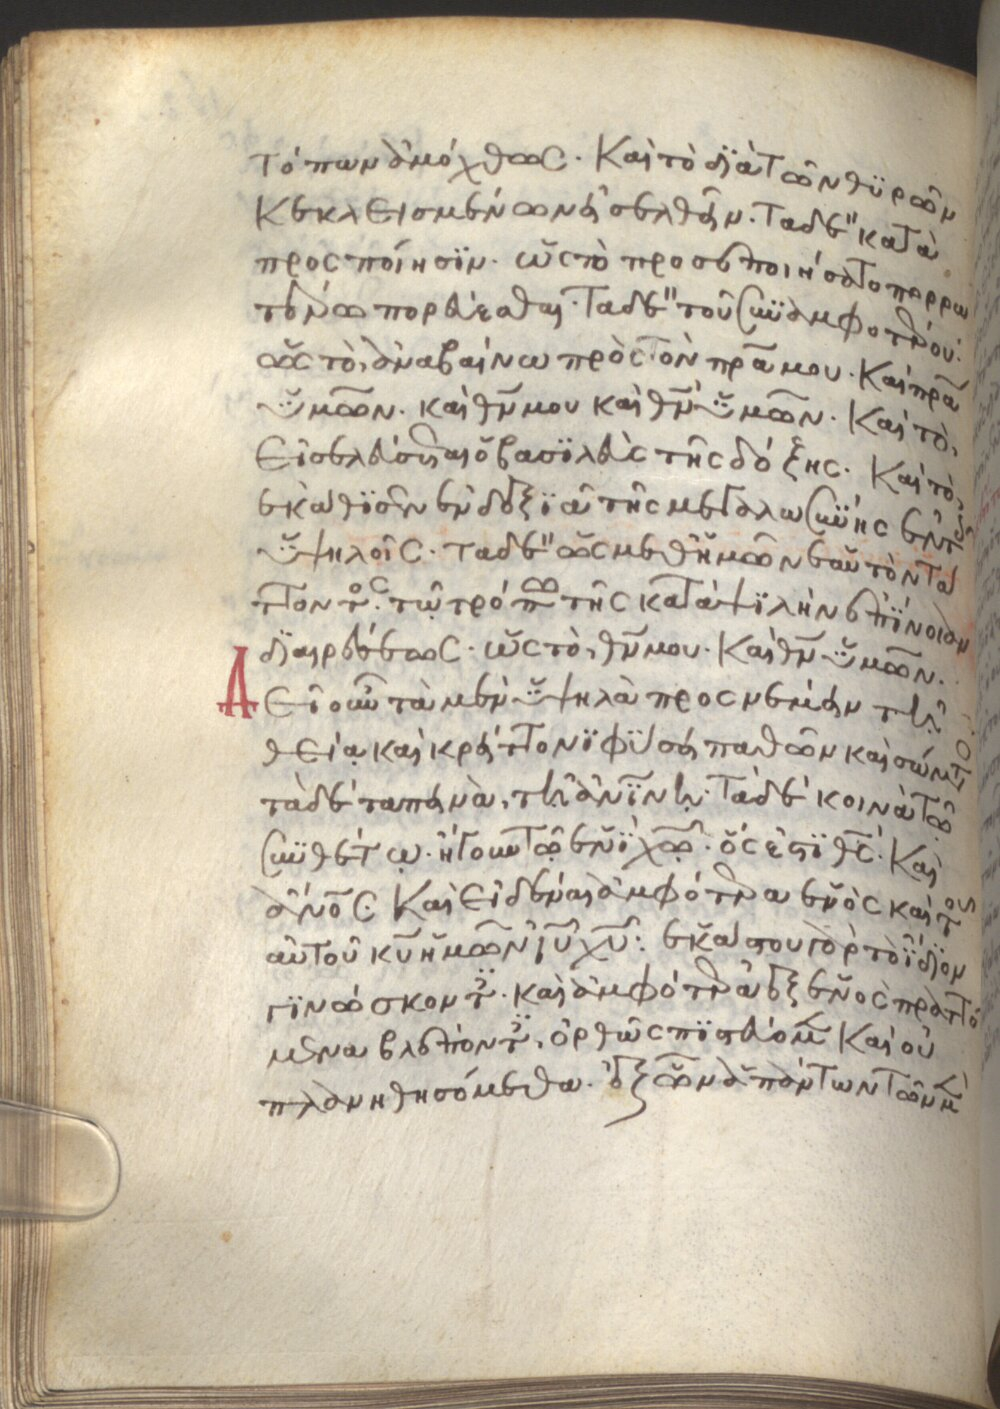 τόπων ἀμόχθως· Καὶ τὸ διὰ τῶν θυρῶν
κεκλεισμένων εἰσελθεῖν· τὰ δὲ κατὰ
προςποίησϊν· ὡς τὸ προσεποιήσατο πορρω
τέρω πορεύεσθαι· τὰ δὲ τοῦ συναμφοτέρου·
ὡς τὸ, ἀναβαίνω πρὸς τὸν πρα μου· Καὶ πρα
ϋμῶν· καὶ θν μου καὶ θν ϋμῶν· Καὶ τὸ,
εἰσελεύσεται ὁ βασϊλεὺς τῆς δόξης· Καὶ τὸ,
ἐκάθϊσεν ἐν δεξϊᾶ τῆς μεγαλωσύνης ἐν
ϋψηλοῖς· τὰ δὲ ὡς μεθ ἡμῶν ἑαυτὸν τά
ττοντος· τῶ τρόπω τῆς κατὰ ψϊλὴν ἐπϊνοιαν
διαιρέσεως· ὡς τὸ, θν μου· Καὶ θν ϋμῶν·
Δεῖ οὖν τὰ μὲν ϋψηλὰ προςνεμειν τῆ
θεία καὶ κρείττονϊ φϋσει παθῶν καὶ σώματος
τὰ δὲ ταπεινὰ, τῆ ἀνϊνη· Τὰ δὲ κοινὰ τῶ
συνθέτω· ἤγουν τῶ ἑνϊ χω· ὅς ἐστϊ θς· Καὶ
ἀνος· Καὶ εἰδέναι ἀμφότερα ἑνὸς καὶ τοῦ
αὐτοῦ κυ ἡμῶν ιυ χυ· ἑκάστου γὰρ τὸ ἴδϊον
γϊνώσκοντες· καὶ ἀμφότερα ἐξ ἑνος πραττό
μενα βλέποντες, ὀρθῶς πϊστεύομεν Καὶ οὐ
πλανηθησόμεθα· ἐξ ὧν ἁπάντων τῶν μὲν